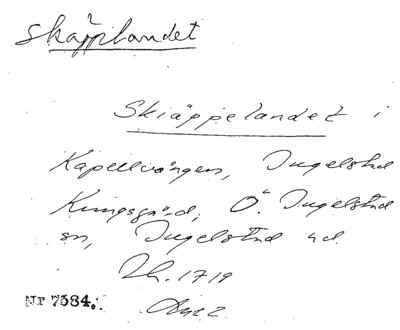 Skäpplandet
Skiäppelandet i
Kapellvången, Ingelstad
Kungsgård, Ö. Ingelstad
sn, Ingelstad hd.
Lh. 1719
Nr 7584.